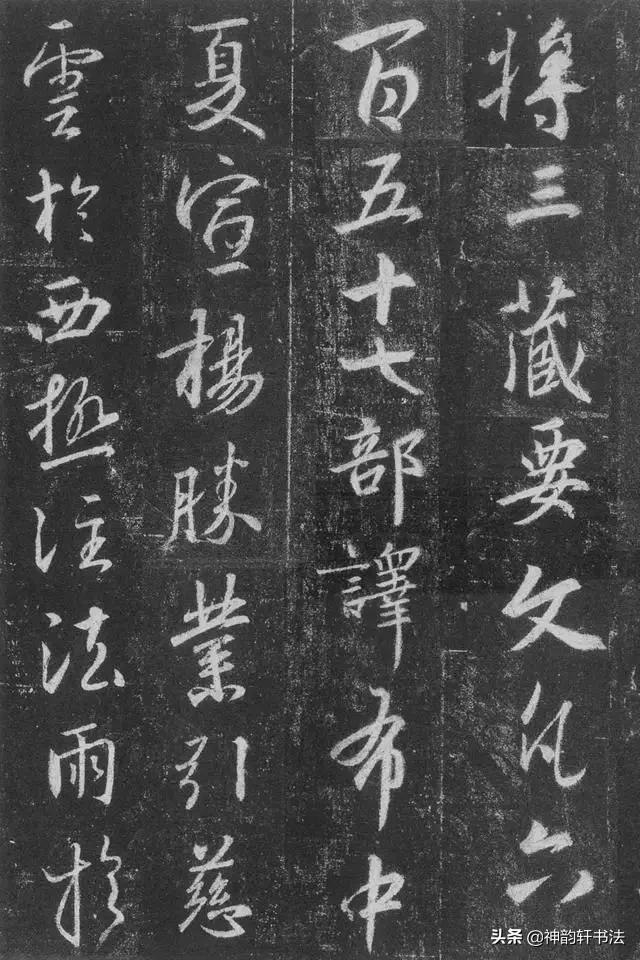 將三藏要文凡六
百五十七部譯布中
夏宣楊勝業引慈
雲於西極注法雨於
头条 @神韵轩书法